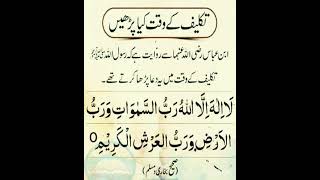 تکلیف کے وقت کیا پڑھیں
ابن عباس رضی اللہ عنہما سے روایت ہے کہ رسول اللہ ﷺ
تکلیف کے وقت میں یہ دعا پڑھا کرتے تھے۔
لَا اِلٰهَ اِلَّا اللهُ رَبُّ السَّمٰوَاتِ وَرَبُّ
الْاَرْضِ وَرَبُّ الْعَرْشِ الْكَرِيْمِ ○
(صحیح بخاری ومسلم)